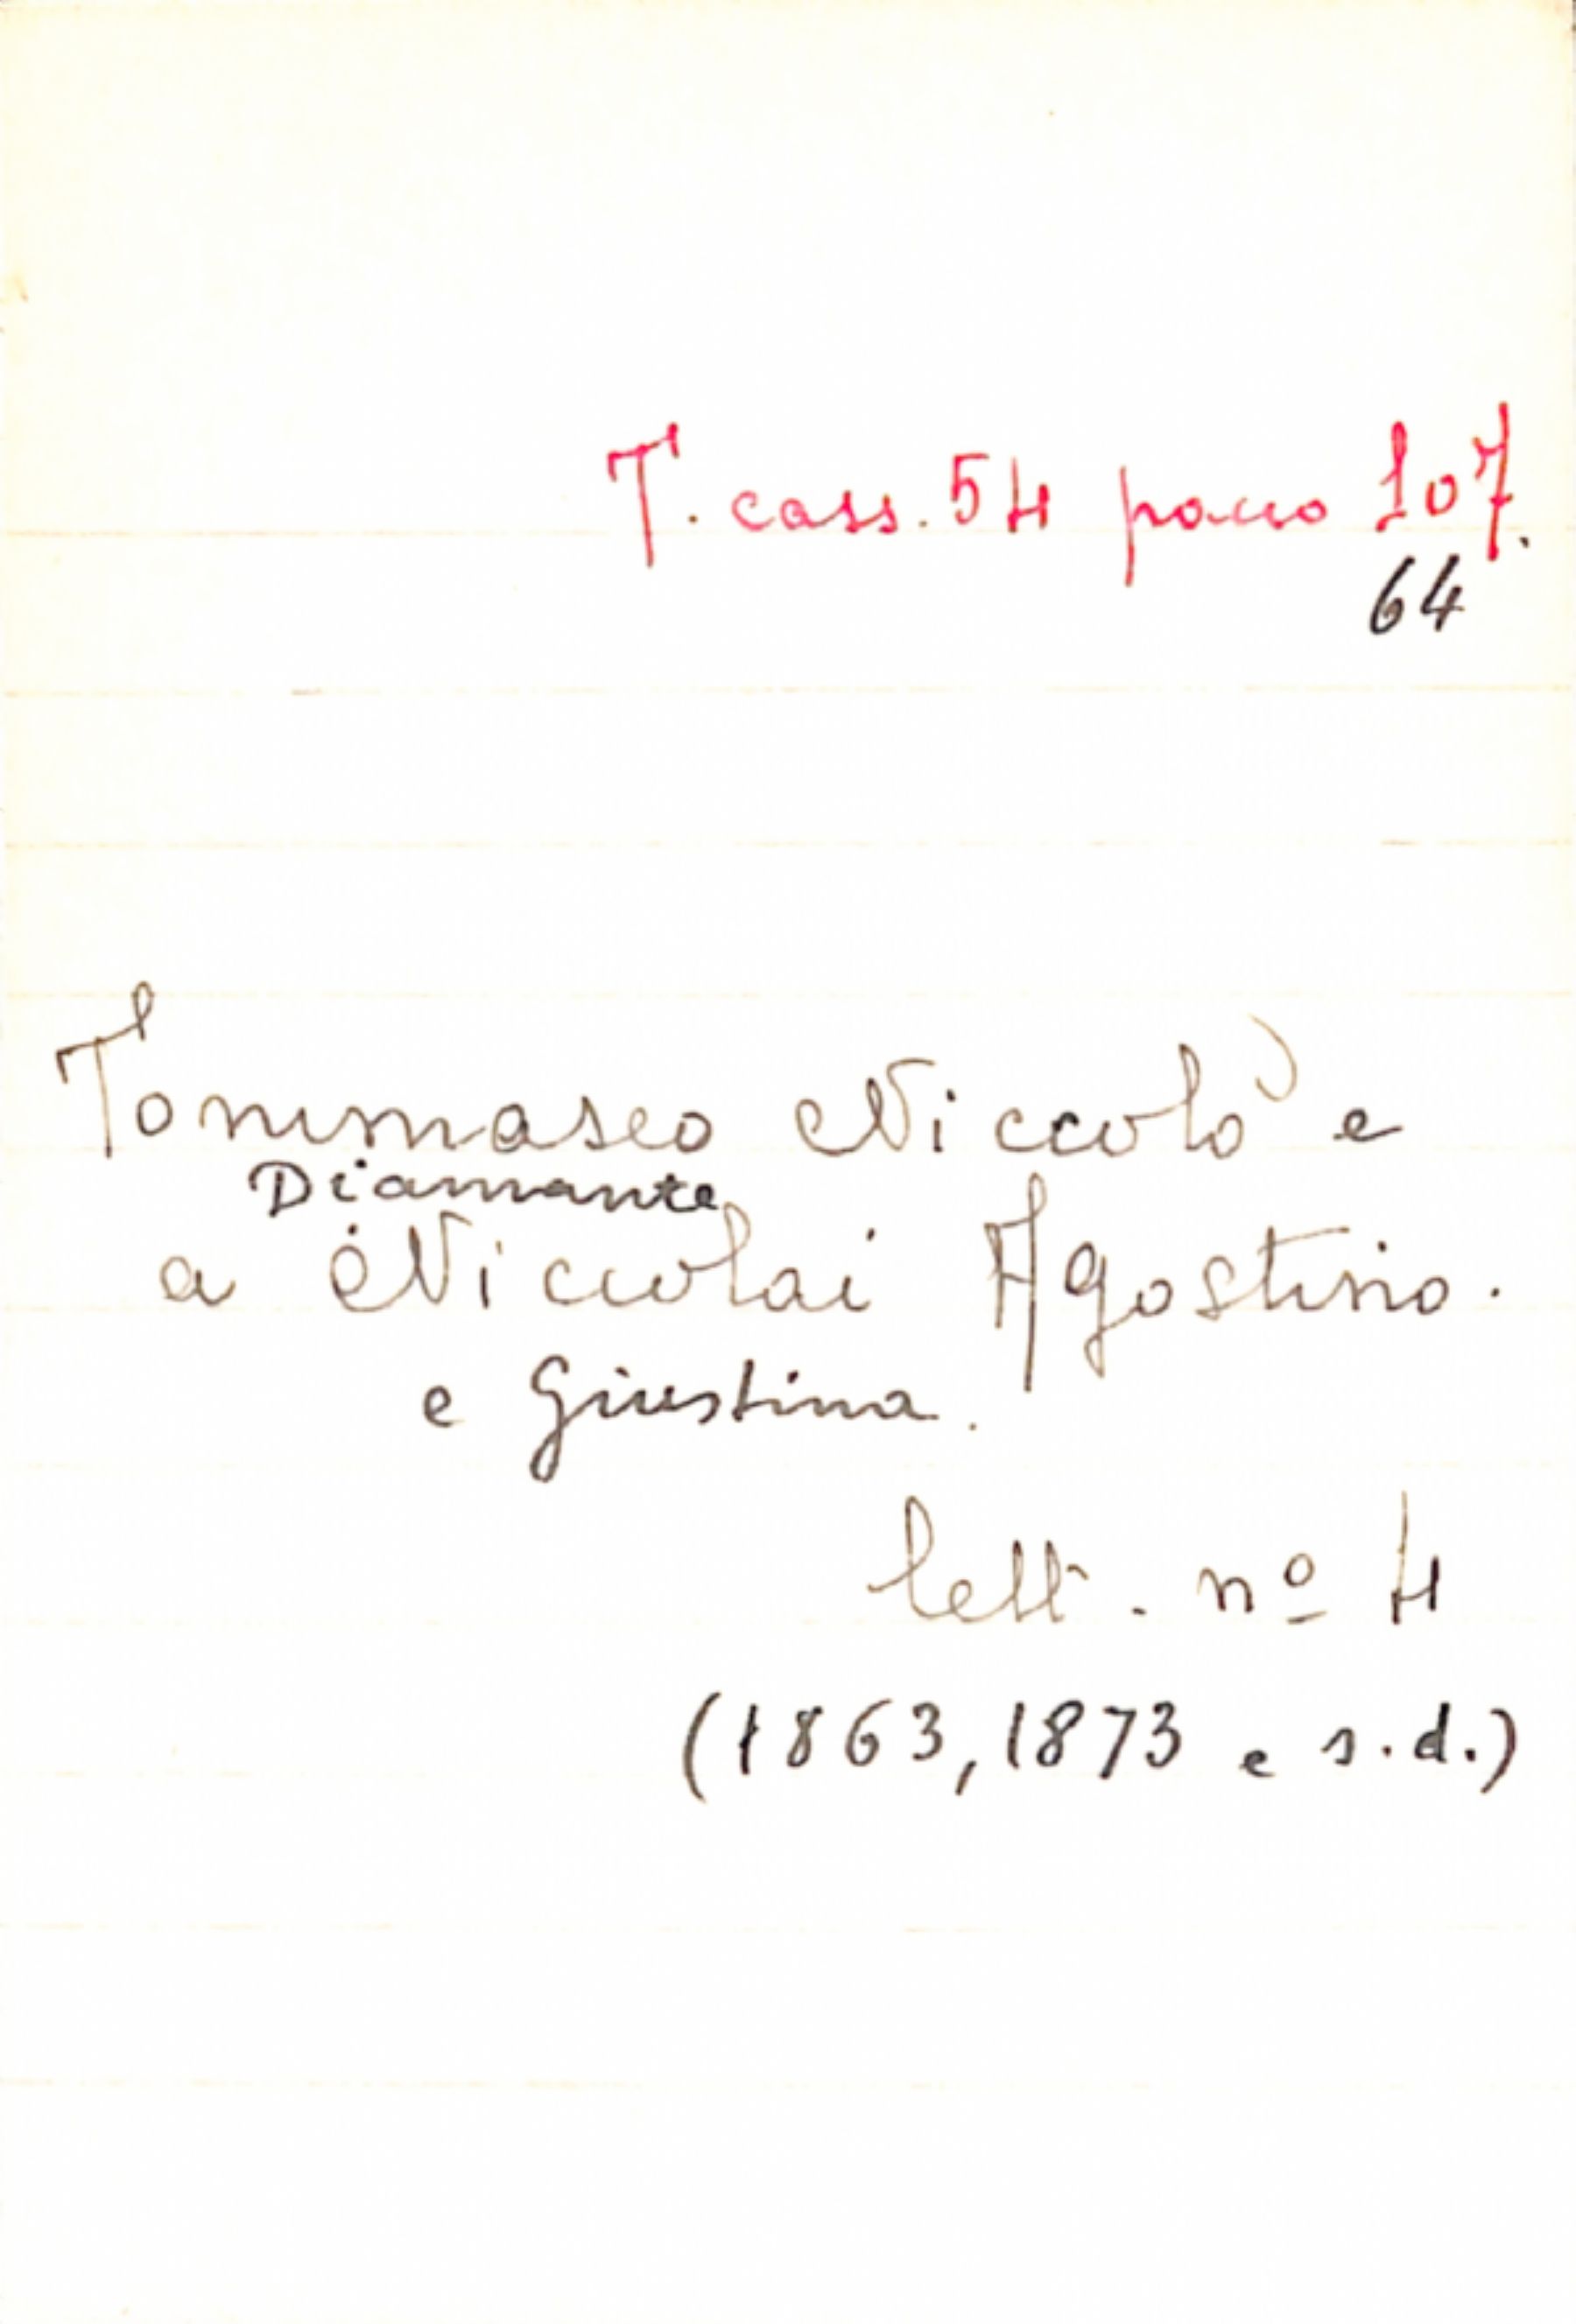 T. cass. 54 pacco 107.
64
Tommaseo Niccolò e
Diamante
a Niccolai Agostino.
e Giustina.
lett. nº 4
(1863, 1873 e s.d.)